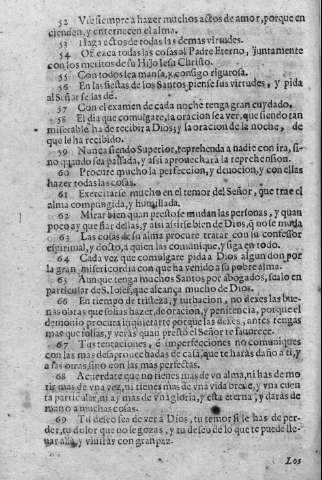 52 Vse siempre a hazer muchos actos de amor, porque en
cienden, y enternecen el alma.
53 Haga actos de todas las demas virtudes.
54 Ofrezca todas las cosas al Padre Eterno, juntamente
con los meritos de su Hijo Iesu Christo.
55 Con todos sea mansa, y consigo rigurosa.
56 En las fiestas de los Santos piense sus virtudes, y pida
al Señor se las dè.
57 Con el examen de cada noche tenga gran cuydado.
58 El dia que comulgare, la oracion sea ver, que siendo tan
miserable ha de recibir a Dios; y la oracion de la noche, de
que le ha recibido.
59 Nunca siendo Superior, reprehenda a nadie con ira, si-
no quando sea passada, y assi aprouecharà la reprehension.
60 Procure mucho la perfeccion, y deuocion, y con ellas
hazer todas las cosas.
61 Exercitarse mucho en el temor del Señor, que trae el
alma compungida, y humillada.
62 Mirar bien quan presto se mudan las personas, y quan
poco ay que fiar dellas, y assi asirse bien de Dios, q̃ no se muda
63 Las cosas de su alma procure tratar con su confessor
espiritual, y docto, a quien las comunique, y siga en todo.
64 Cada vez que comulgare pida a Dios algun don por
la gran misericordia con que ha venido a su pobre alma.
65 Aunque tenga muchos Santos por abogados, sealo en
particular de S. Iosef, que alcança mucho de Dios.
66 En tiempo de tristeza, y turbacion, no dexes las bue-
nas obras que solias hazer, de oracion, y penitencia, porque el
demonio procura inquietarte porque las dexes, antes tengas
mas que solias, y veràs quan presto el Señor te fauorece.
67 Tus tentaciones, è imperfecciones no comuniques
con las mas desaprouechadas de casa, que te haràs daño a ti, y
a las otras, sino con las mas perfectas.
68 Acuerdate que no tienes mas de vn alma, ni has de mo
rir mas de vna vez, ni tienes mas de vna vida breue, y vna cuen
ta particular, ni ay mas de vna gloria, y esta eterna, y daràs de
mano a muchas cosas.
69 Tu deseo sea de ver a Dios, tu temor si le has de per-
der, tu dolor que no le gozas, y tu deseo de lo que te puede lle-
uar allà, y viuiràs con gran paz.
Los